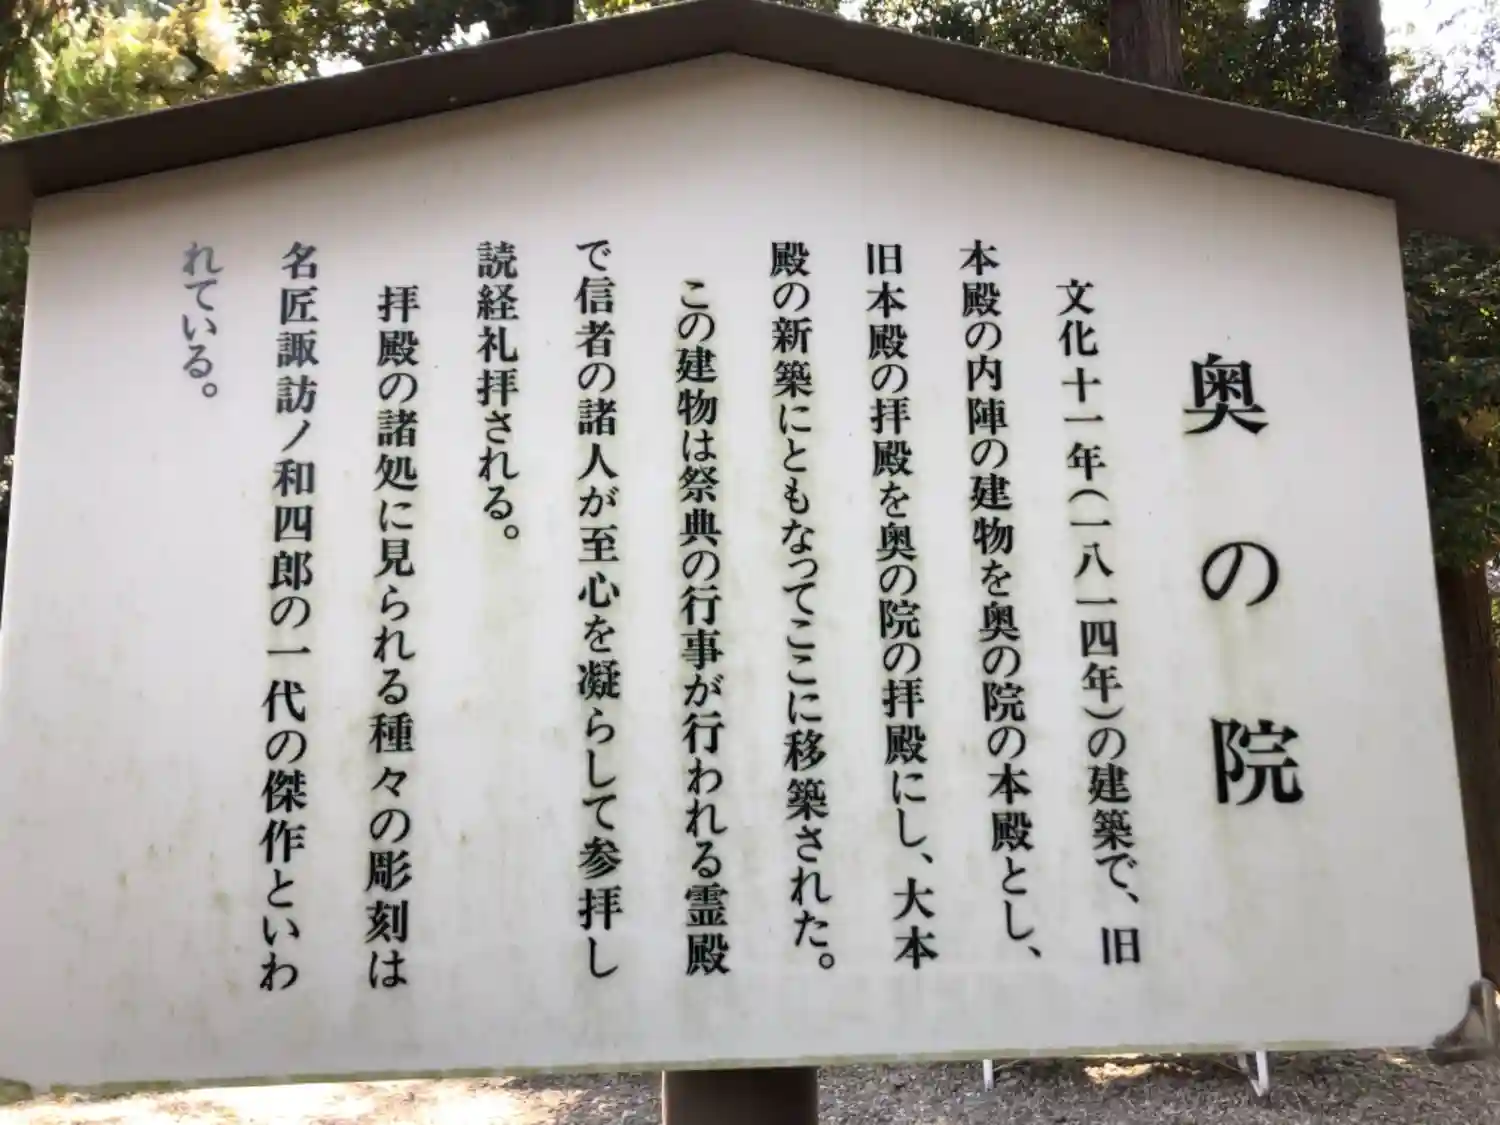 奥の院
文化十一年(一八一四年)の建築で、旧
本殿の内陣の建物を奥の院の本殿とし、
旧本殿の拝殿を奥の院の拝殿にし、大本
殿の新築にともなってここに移築された。
この建物は祭典の行事が行われる霊殿
で信者の諸人が至心を凝らして参拝し
読経礼拝される。
拝殿の諸処に見られる種々の彫刻は
名匠諏訪ノ和四郎の一代の傑作といわ
れている。